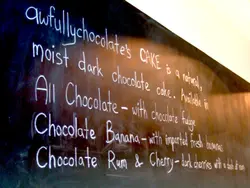 awfullychocolate's CAKE is a natural,
moist dark chocolate cake. Available in
All Chocolate - with chocolate fudge
Chocolate Banana - with imported fresh bananas
Chocolate Rum & Cherry - dark cherries with a dash of rum